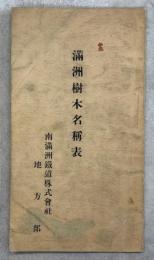 滿洲樹木名稱表
南滿洲鐵道株式會社
地方部